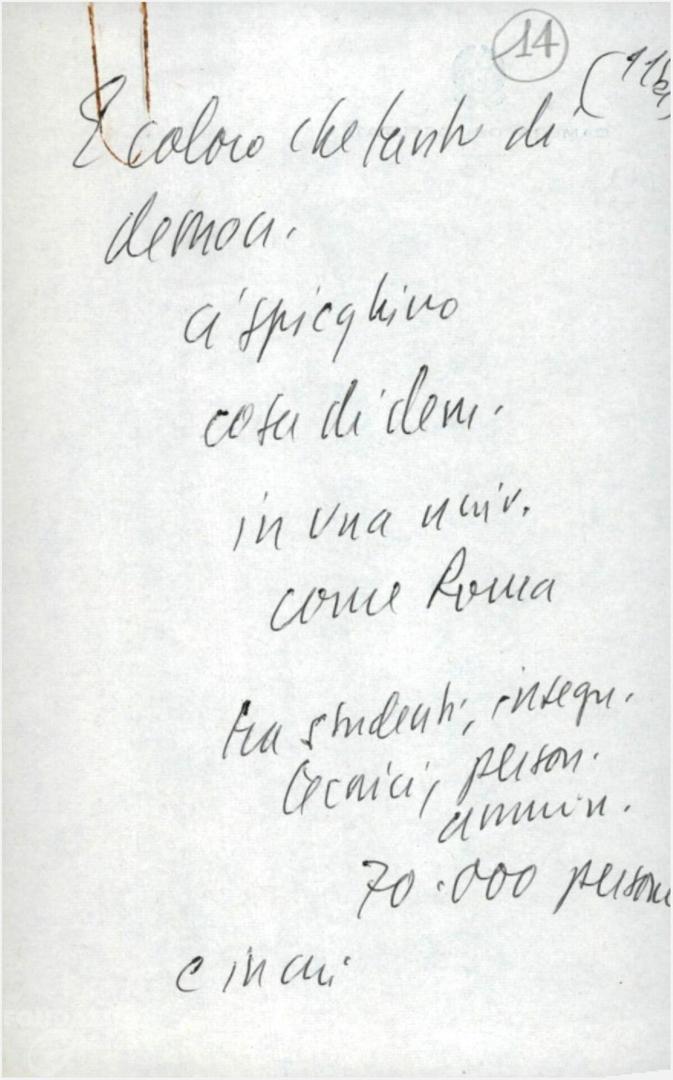 14
E coloro che tanto di
democr.
ci spieghino
cosa di dem.
in una univ.
come Roma
tra studenti, insegn.
tecnici, person.
ammin.
70.000 persone
e in cui